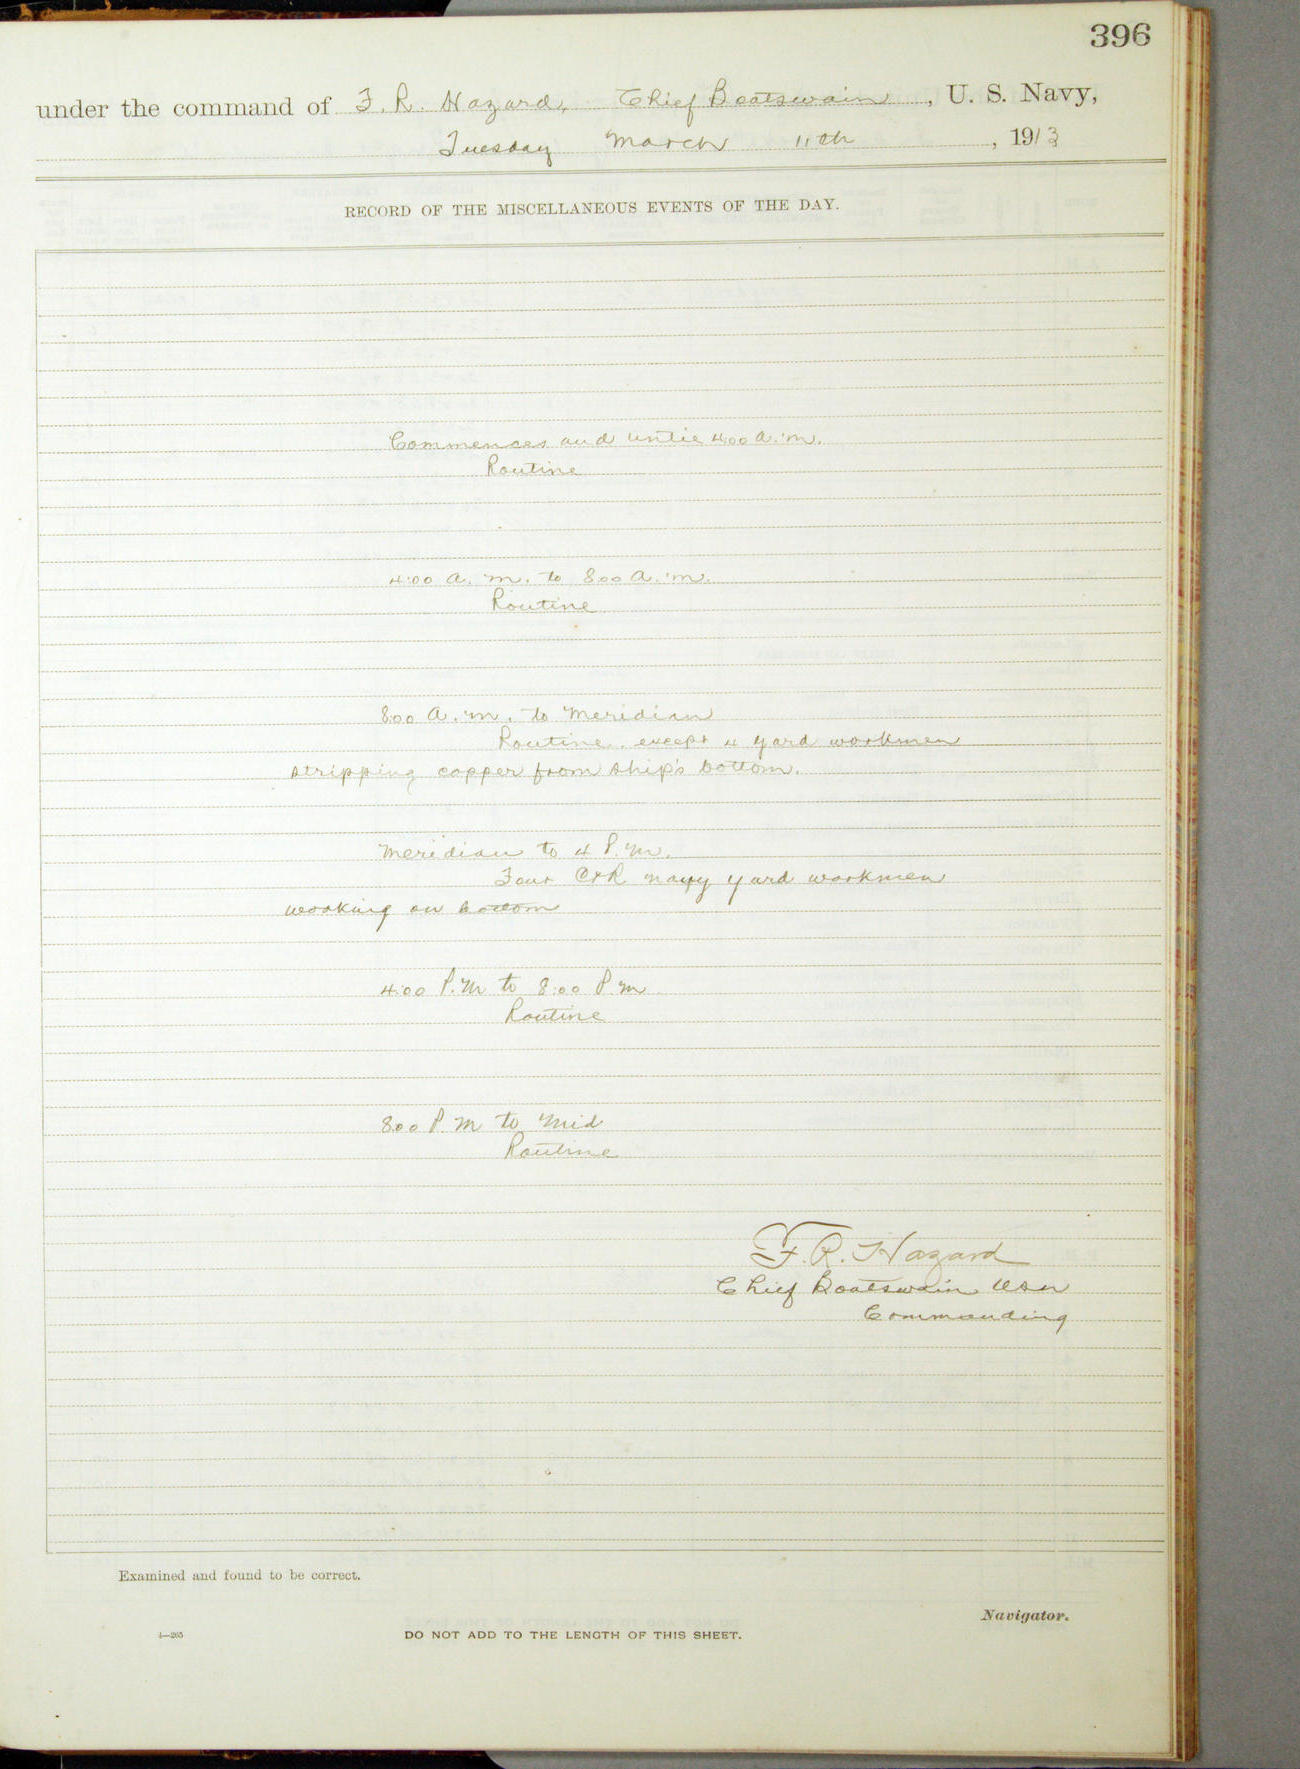 396
under the command of F. R. Hazard, Chief Boatswain, U. S. Navy,
Tuesday March 11th, 1913
RECORD OF THE MISCELLANEOUS EVENTS OF THE DAY.
Commences and until 4:00 a.m.
Routine
4:00 a.m. to 8:00 a.m.
Routine
8:00 a.m. to Meridian
Routine. except 4 yard workmen
stripping copper from ship's bottom.
Meridian to 4 P.M.
Four C&R navy yard workmen
working on bottom
4:00 P.M to 8:00 P.M
Routine
8:00 P M to Mid
Routine
F. R. Hazard
Chief Boatswain USN
Commanding
Examined and found to be correct.
Navigator.
4—265
DO NOT ADD TO THE LENGTH OF THIS SHEET.